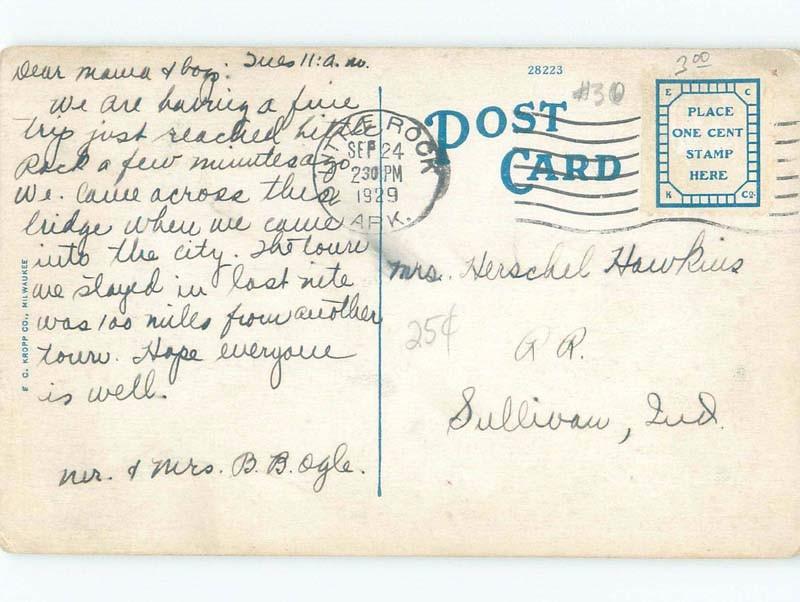 Dear mama & boys: Tues 11: a.m.
We are having a fine
trip just reached Little
Rock a few minutes ago
We. came across this
bridge when we came
into the city. The town
we stayed in last nite
was 100 miles from another
town. Hope everyone
is well.
Mr. & Mrs. B. B. Ogle.
E. C. KROPP CO., MILWAUKEE
LITTLE ROCK
SEP 24
230 PM
1929
ARK.
28223
#30
3 00
POST
CARD
E C
PLACE
ONE CENT
STAMP
HERE
K Co.
Mrs. Herschel Hawkins
25¢
R R.
Sullivan, Ind.